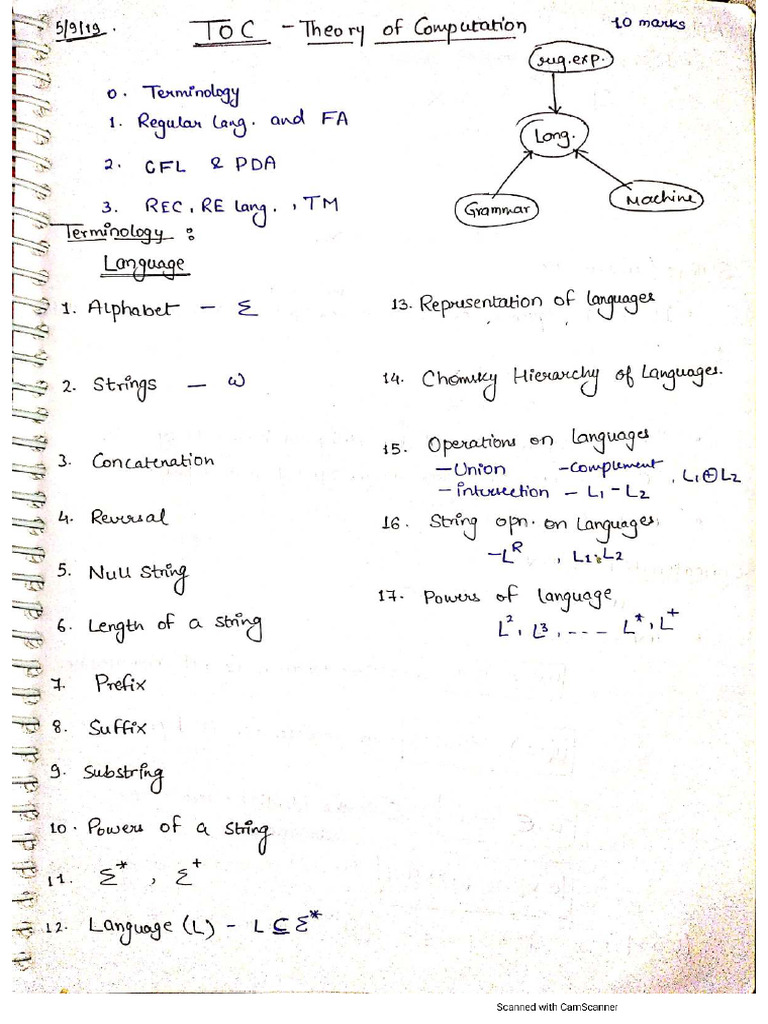 5/9/19.
TOC - Theory of Computation
10 marks
reg.exp.
Lang.
Grammar
Machine
0. Terminology
1. Regular Lang. and FA
2. CFL & PDA
3. REC, RE lang., TM
Terminology :
Language
1. Alphabet - Σ
2. Strings - ω
3. Concatenation
4. Reversal
5. Null string
6. Length of a string
7. Prefix
8. Suffix
9. Substring
10. Powers of a string
11. Σ* , Σ+
12. Language (L) - L ⊆ Σ*
13. Representation of languages
14. Chomsky Hierarchy of Languages.
15. Operations on languages
- Union - complement
- intersection - L1 - L2 , L1 ⊕ L2
16. String opn. on Languages
- L^R , L1.L2
17. Powers of language
L², L³, --- L*, L+
Scanned with CamScanner